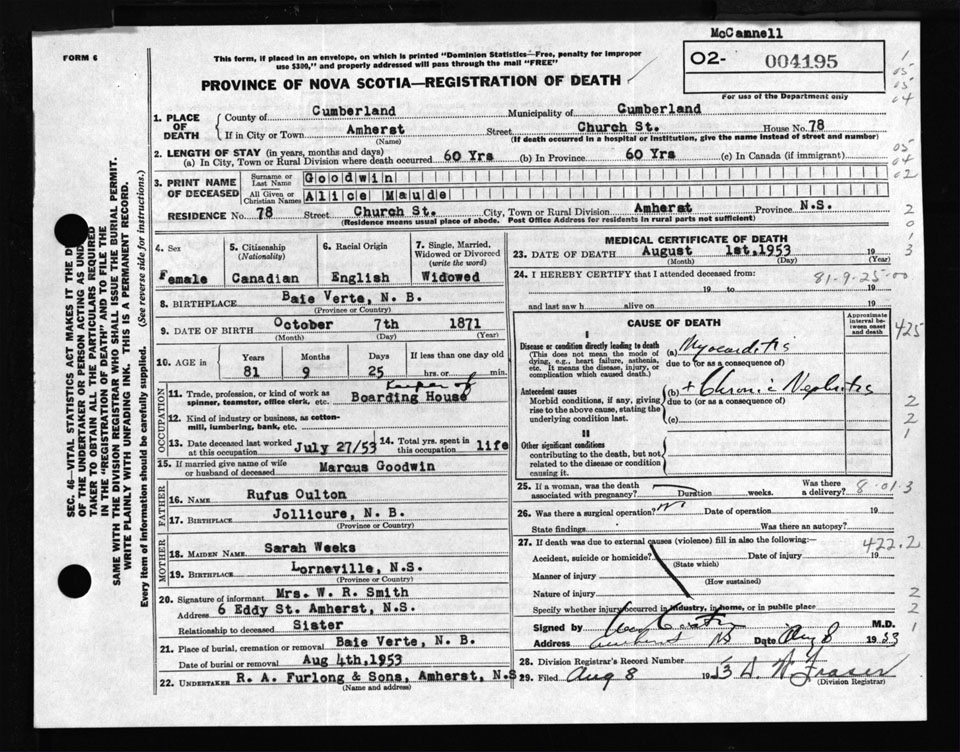 McCannell
FORM 6
This form, if placed in an envelope, on which is printed "Dominion Statistics—Free, penalty for improper
use $300," and properly addressed will pass through the mail "FREE"
O2- 004195
For use of the Department only
PROVINCE OF NOVA SCOTIA—REGISTRATION OF DEATH
1. PLACE OF DEATH
County of Cumberland Municipality of Cumberland
If in City or Town Amherst Street Church St. House No. 78
(Name) (If death occurred in a hospital or institution, give the name instead of street and number)
2. LENGTH OF STAY (in years, months and days)
(a) In City, Town or Rural Division where death occurred 60 Yrs (b) In Province 60 Yrs (c) In Canada (if immigrant)
3. PRINT NAME OF DECEASED
Surname or Last Name Goodwin
All Given or Christian Names Alice Maude
RESIDENCE No. 78 Street Church St. City, Town or Rural Division Amherst Province N.S.
(Residence means usual place of abode. Post Office Address for residents in rural parts not sufficient)
SEC. 46—VITAL STATISTICS ACT MAKES IT THE
OF THE UNDERTAKER OR PERSON ACTING AS
TAKER TO OBTAIN ALL THE PARTICULARS REQUIRED
IN THE "REGISTRATION OF DEATH" AND TO FILE THE
SAME WITH THE DIVISION REGISTRAR WHO SHALL ISSUE THE BURIAL PERMIT.
WRITE PLAINLY WITH UNFADING INK. THIS IS A PERMANENT RECORD.
Every item of information should be carefully supplied. (See reverse side for instructions.)
4. Sex Female
5. Citizenship (Nationality) Canadian
6. Racial Origin English
7. Single, Married, Widowed or Divorced (write the word) Widowed
8. BIRTHPLACE Baie Verte, N. B.
(Province or Country)
9. DATE OF BIRTH October 7th 1871
(Month) (Day) (Year)
10. AGE in Years 81 Months 9 Days 25 If less than one day old hrs. or min.
OCCUPATION
11. Trade, profession, or kind of work as spinner, teamster, office clerk, etc. Keeper of Boarding House
12. Kind of industry or business, as cotton-mill, lumbering, bank, etc.
13. Date deceased last worked at this occupation July 27/53
14. Total yrs. spent in this occupation life
15. If married give name of wife or husband of deceased Marcus Goodwin
FATHER
16. NAME Rufus Oulton
17. BIRTHPLACE Jollicure, N. B.
(Province or Country)
MOTHER
18. MAIDEN NAME Sarah Weeks
19. BIRTHPLACE Lorneville, N.S.
(Province or Country)
20. Signature of informant Mrs. W. R. Smith
Address 6 Eddy St. Amherst, N.S.
Relationship to deceased Sister
21. Place of burial, cremation or removal Baie Verte, N. B.
Date of burial or removal Aug 4th, 1953
22. UNDERTAKER R. A. Furlong & Sons, Amherst, N.S
(Name and address)
MEDICAL CERTIFICATE OF DEATH
23. DATE OF DEATH August 1st, 1953 19
(Month) (Day)
24. I HEREBY CERTIFY that I attended deceased from:
81-9-25-00
19 to 19
and last saw h alive on 19
CAUSE OF DEATH
Approximate interval between onset and death
I
Disease or condition directly leading to death
(This does not mean the mode of dying, e.g., heart failure, asthenia, etc. It means the disease, injury, or complication which caused death.)
(a) Myocarditis
due to (or as a consequence of)
Antecedent causes
Morbid conditions, if any, giving rise to the above cause, stating the underlying condition last.
(b) + Chronic Nephritis
due to (or as a consequence of)
(c)
II
Other significant conditions
contributing to the death, but not related to the disease or condition causing it.
25. If a woman, was the death associated with pregnancy? Duration weeks. Was there a delivery?
8-01-3
26. Was there a surgical operation? Date of operation 19
State findings Was there an autopsy?
27. If death was due to external causes (violence) fill in also the following:—
422.2
Accident, suicide or homicide? Date of injury 19
(State which)
Manner of injury
(How sustained)
Nature of injury
Specify whether injury occurred in industry, in home, or in public place
Signed by M.D.
Address Amherst NS Date Aug 8 1953
28. Division Registrar's Record Number
29. Filed Aug 8 1953 Fraser
(Division Registrar)
1
05
05
04
05
04
02
2
0
1
3
425
2
2
1
2
2
1